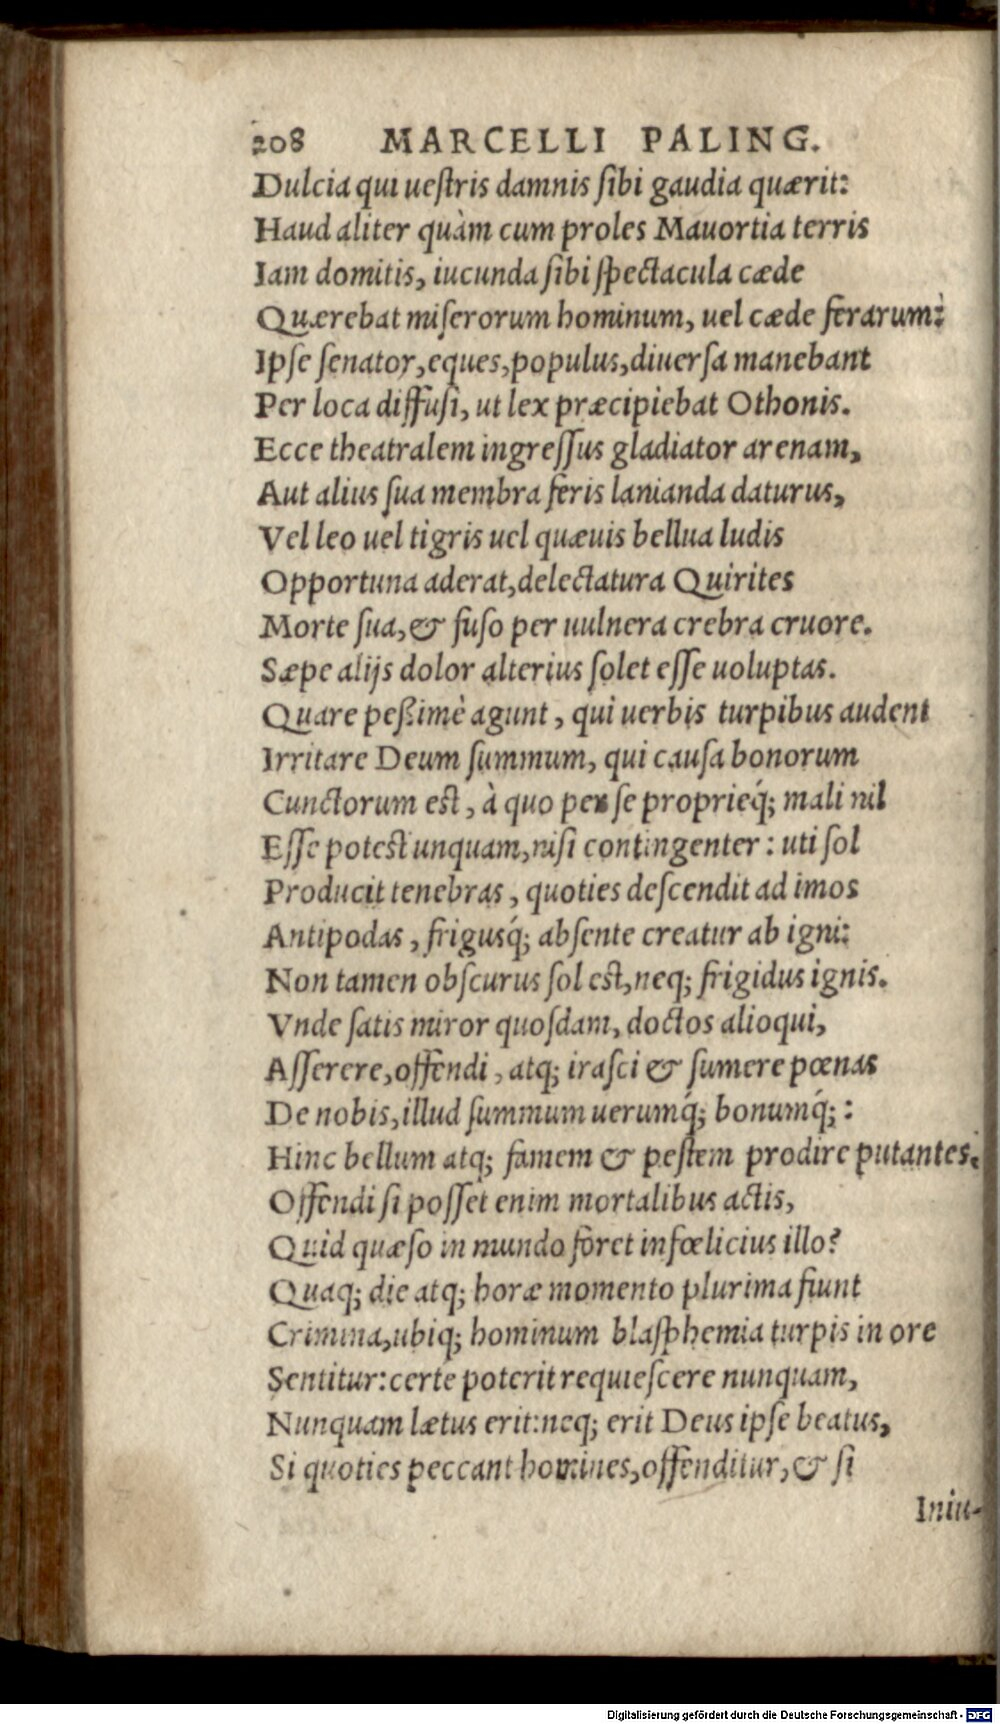 208 MARCELLI PALING.
Dulcia qui ueſtris damnis ſibi gaudia quærit:
Haud aliter quàm cum proles Mauortia terris
Iam domitis, iucunda ſibi ſpectacula cæde
Quærebat miſerorum hominum, uel cæde ferarum:
Ipſe ſenator, eques, populus, diuerſa manebant
Per loca diffuſi, ut lex præcipiebat Othonis.
Ecce theatralem ingreſſus gladiator arenam,
Aut alius ſua membra feris lanianda daturus,
Vel leo uel tigris uel quæuis bellua ludis
Opportuna aderat, delectatura Quirites
Morte ſua, & fuſo per uulnera crebra cruore.
Sæpe alijs dolor alterius ſolet eſſe uoluptas.
Quare peßimè agunt, qui uerbis turpibus audent
Irritare Deum ſummum, qui cauſa bonorum
Cunctorum est, à quo per ſe proprieq́; mali nil
Eſſe potest unquam, niſi contingenter: uti ſol
Producit tenebras, quoties deſcendit ad imos
Antipodas, frigusq́; abſente creatur ab igni:
Non tamen obſcurus ſol est, neq; frigidus ignis.
Vnde ſatis miror quoſdam, doctos alioqui,
Aſſerere, offendi, atq; iraſci & ſumere pœnas
De nobis, illud ſummum uerumq́; bonumq́;:
Hinc bellum atq; famem & peſtem prodire putantes.
Offendi ſi poſſet enim mortalibus actis,
Quid quæſo in mundo foret infœlicius illo?
Quaq; die atq; horæ momento plurima fiunt
Crimina, ubiq; hominum blaſphemia turpis in ore
Sentitur: certe poterit requieſcere nunquam,
Nunquam lætus erit: neq; erit Deus ipſe beatus,
Si quoties peccant homines, offenditur, & ſi
Iniu-
Digitalisierung gefördert durch die Deutsche Forschungsgemeinschaft - DFG